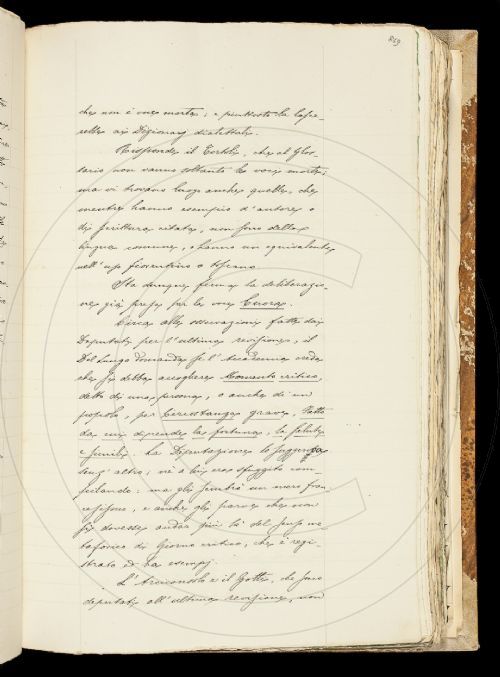 869
che non è voce morta; e piuttosto da lascia-
rla ai Dizionarj dialettali.
Risponde il Tortoli, che al Glos-
sario non vanno soltanto le voci morte;
ma vi trovano luogo anche quelle, che
mentre hanno esempio d'autore o
di scrittura citata, non sono della
lingua comune, o hanno un equivalente
nell'uso fiorentino o toscano.
Sta dunque ferma la deliberazio-
ne già presa per la voce
Circa alle osservazioni fatte dai
Deputati per l'ultima revisione, il
Del Lungo domanda se l'Accademia creda
che si debba accogliere Momento critico,
detto di una persona, o anche di un
popolo, per Circostanza grave, Fatto
da cui dipende la fortuna, la salute
e simili. La Deputazione lo
senz'altro; nè a lui era sfuggito com-
pilando: ma gli sembrò un mero fran-
cesismo, e anche gli parve che non
si dovesse andar più là del senso me-
taforico di Giorno critico, che è regi-
strato ed ha esempj.
L'Arciconsolo e il Gotti, che sono
deputati all'ultima revisione, non